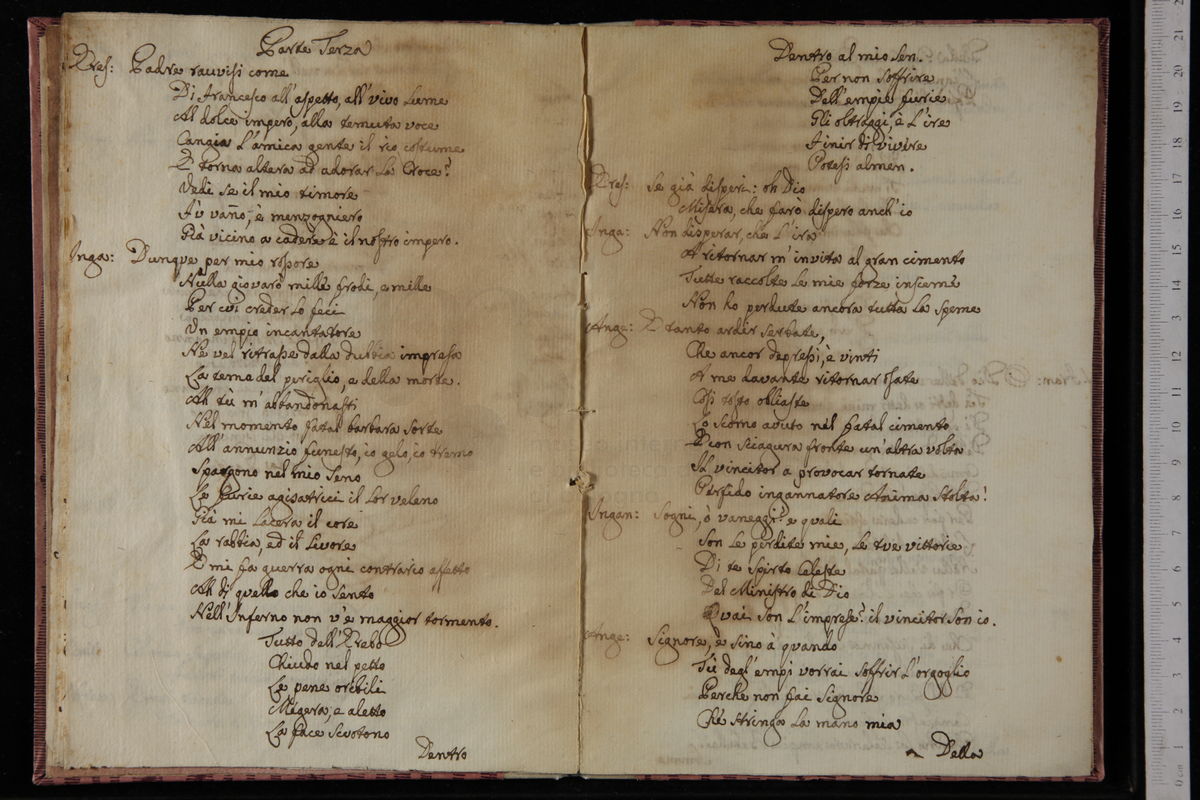 Parte Terza
Eres: Padre ravvisi come
Di Francesco all'aspetto, all'vivo lume
Al dolce impero, alla temuta voce
Cangia l'amica gente il rio costume
E torna altera ad adorar la Croce?
Vedi se il mio timore
Fù vano, e menzogniero
Già vicino a cadere è il nostro impero.
Inga: Dunque per mio rossore
Nulla giovarò mille frodi, e mille
Per cui creder lo feci
Un empio incantatore
Ne vel ritrasse dalla dubbia impresa
La tema del periglio, e della morte.
Ah tù m'abbandonasti
Nel momento fatal barbara sorte
All'annunzio funesto, io gelo, io tremo
Spargono nel mio seno
Le furie agitatrici il lor veleno
Già mi lacera il core
La rabbia, ed il livore
E mi fa guerra ogni contrario affetto
Ah di quello che io sento
Nell'Inferno non v'è maggior tormento.
Tutto dell'Erebo
Chiudo nel petto
Le pene oribili
Megera, e aletto
La face scuotono
Dentro
Dentro al mio sen.
Per non soffrire
Dell'empie furie
Gli oltraggi, è l'ire
Finir di vivire
Potessi almen.
Eres: Se già disperi: oh Dio
Misera, che farò dispero anch'io
Inga: Non disperar, che l'ira
A ritornar m'invita al gran cimento
Tutte raccolte le mie forze insieme
Non ho perdute ancora tutta la speme
Ange: E tanto ardir serbate,
Che ancor depressi, è vinti
A me davante ritornar osate
Così tosto obliaste
Lo scorno avuto nel fatal cimento
E con sciagura fronte un'altra volta
Il vincitor a provocar tornate
Perfido ingannatore Anima stolta!
Ingan: Sogni, ò vaneggi? e quali
Son le perdite mie, le tue vittorie
Di te spirto Celeste
Del Ministro di Dio
Quai son l'imprese? il vincitor son io.
Ange: Signore, e sino à quando
Tù degl'empi vorrai soffrir l'orgoglio
Perche non fai Signore
Che stringa la mano mia
Della